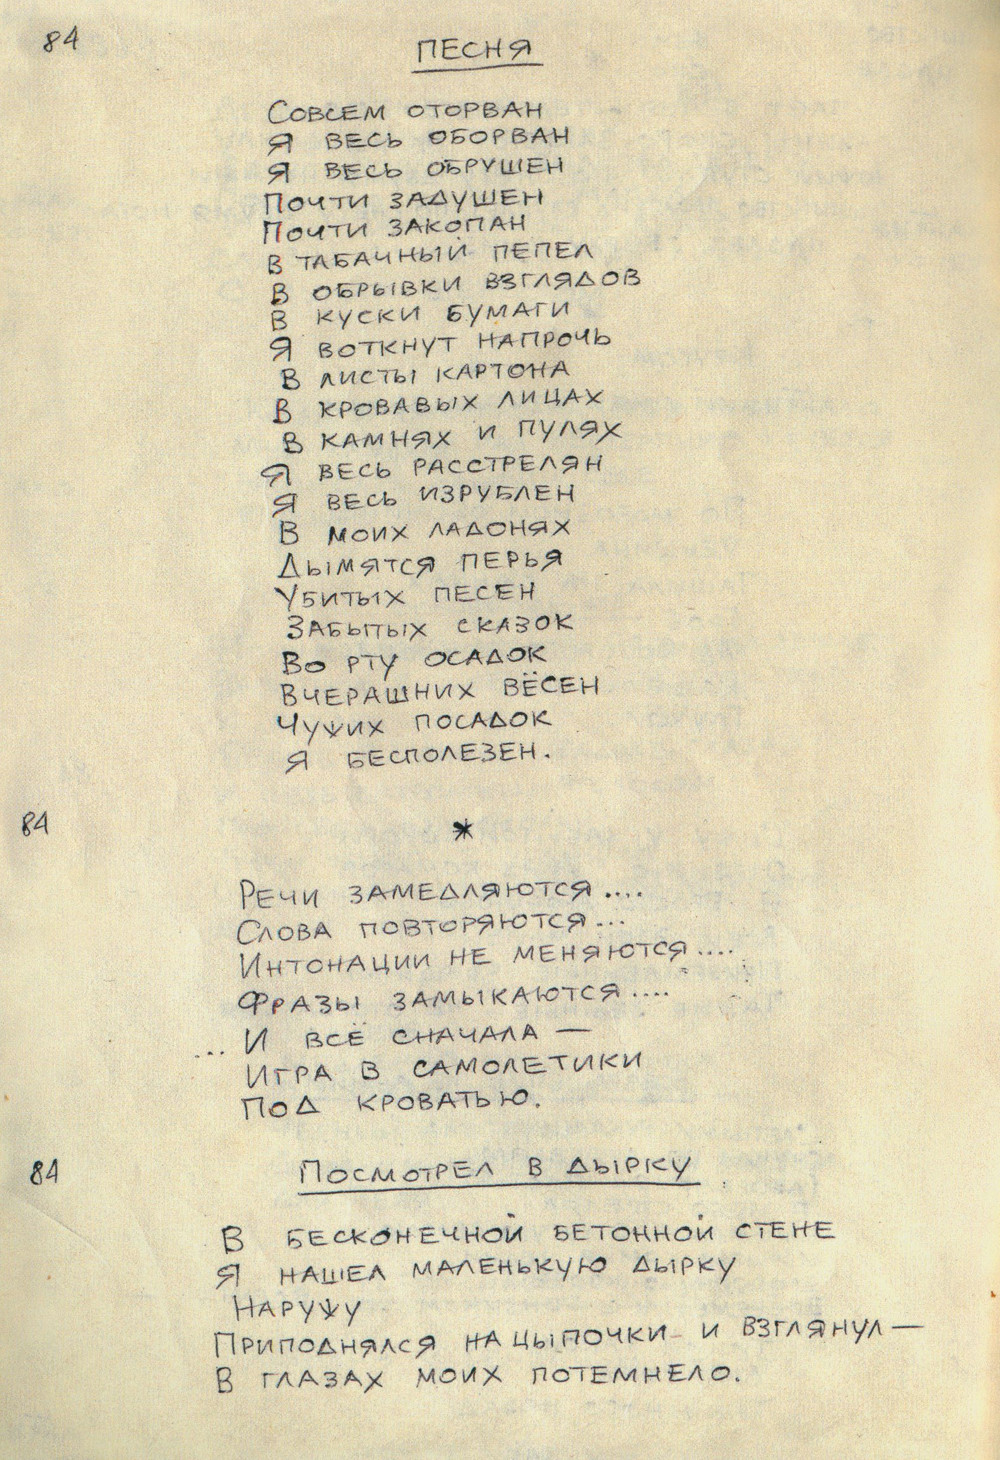 84
ПЕСНЯ
СОВСЕМ ОТОРВАН
Я ВЕСЬ ОБОРВАН
Я ВЕСЬ ОБРУШЕН
ПОЧТИ ЗАДУШЕН
ПОЧТИ ЗАКОПАН
В ТАБАЧНЫЙ ПЕПЕЛ
В ОБРЫВКИ ВЗГЛЯДОВ
В КУСКИ БУМАГИ
Я ВОТКНУТ НАПРОЧЬ
В ЛИСТЫ КАРТОНА
В КРОВАВЫХ ЛИЦАХ
В КАМНЯХ И ПУЛЯХ
Я ВЕСЬ РАССТРЕЛЯН
Я ВЕСЬ ИЗРУБЛЕН
В МОИХ ЛАДОНЯХ
ДЫМЯТСЯ ПЕРЬЯ
УБИТЫХ ПЕСЕН
ЗАБЫТЫХ СКАЗОК
ВО РТУ ОСАДОК
ВЧЕРАШНИХ ВЁСЕН
ЧУЖИХ ПОСАДОК
Я БЕСПОЛЕЗЕН.
84
*
РЕЧИ ЗАМЕДЛЯЮТСЯ....
СЛОВА ПОВТОРЯЮТСЯ...
ИНТОНАЦИИ НЕ МЕНЯЮТСЯ....
ФРАЗЫ ЗАМЫКАЮТСЯ....
... И ВСЁ СНАЧАЛА —
ИГРА В САМОЛЕТИКИ
ПОД КРОВАТЬЮ.
84
ПОСМОТРЕЛ В ДЫРКУ
В БЕСКОНЕЧНОЙ БЕТОННОЙ СТЕНЕ
Я НАШЕЛ МАЛЕНЬКУЮ ДЫРКУ
НАРУЖУ
ПРИПОДНЯЛСЯ НА ЦЫПОЧКИ И ВЗГЛЯНУЛ —
В ГЛАЗАХ МОИХ ПОТЕМНЕЛО.